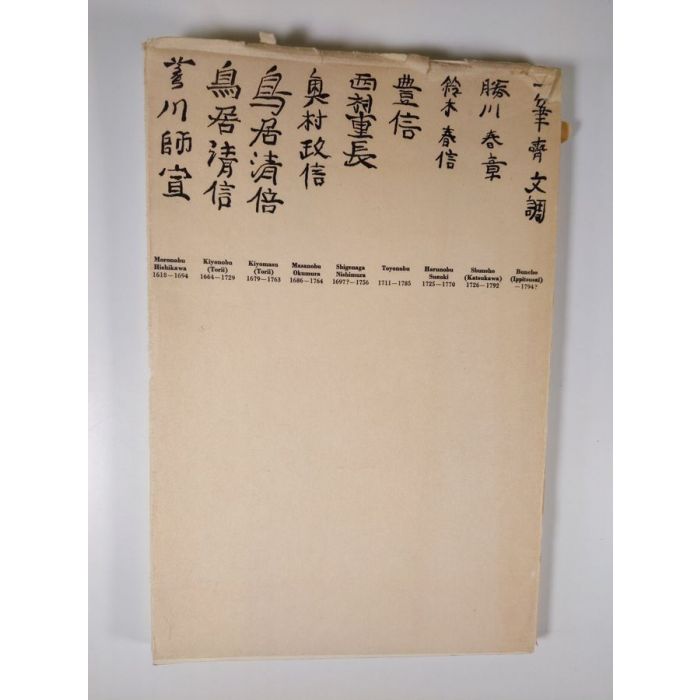 菱川師宣
鳥居清信
鳥居清倍
奥村政信
西村重長
豊信
鈴木春信
勝川春章
一筆齊文調
Moronobu
Hishikawa
1618—1694
Kiyonobu
(Torii)
1664—1729
Kiyomasu
(Torii)
1679—1763
Masanobu
Okumura
1686—1764
Shigenaga
Nishimura
1697?—1756
Toyonobu
1711—1785
Harunobu
Suzuki
1725—1770
Shunsho
(Katsukawa)
1726—1792
Buncho
(Ippitsusai)
—1794?